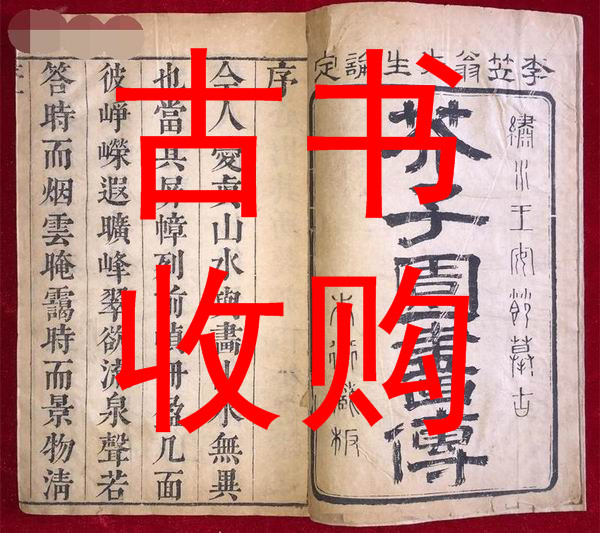 古书
收购
李笠翁先生論定
繡水王安節摹古
芥子園畫傳
本衙藏板
序
今人愛真山水與畫山水無異
也當其屏幛列前幀冊盈几面
彼崢嶸遐曠峰翠欲流泉聲若
答時而烟雲晻靄時而景物清